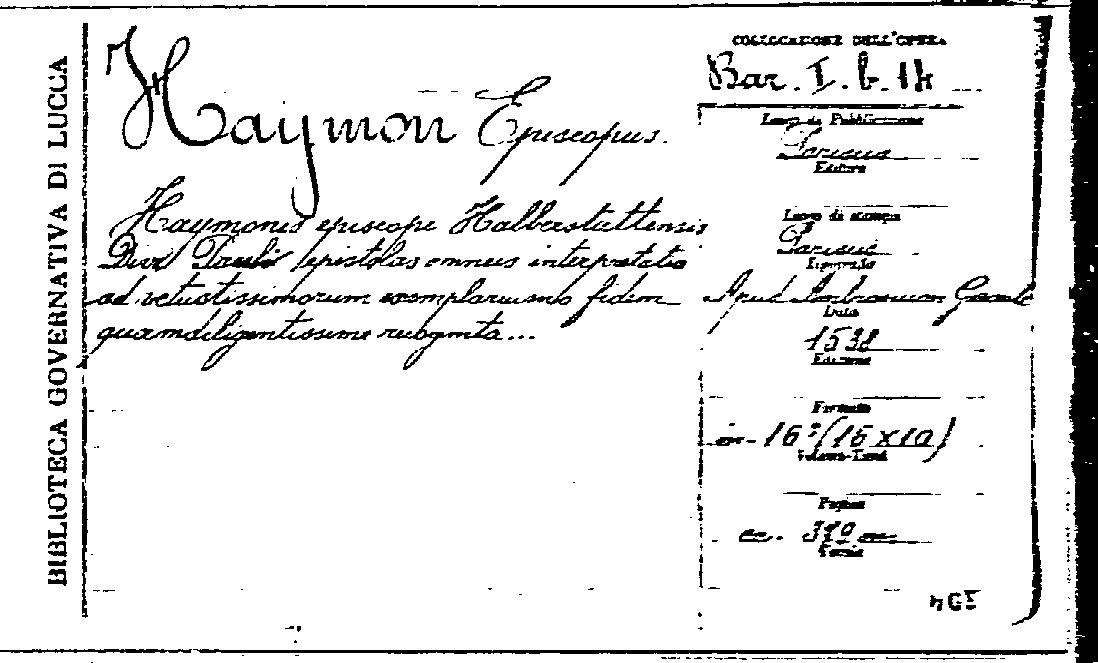 BIBLIOTECA GOVERNATIVA DI LUCCA
Haymon Episcopus.
Haymonis episcopi Halberstattensis
Divi Pauli epistolas omneis interpretatio
ad vetustissimorum exemplariumo fidem
quamdiligentissime recognita...
COLLOCAZIONE DELL'OPERA
Bar. I. b. 14
Luogo di Pubblicazione
Parisiis
Editore
Luogo di stampa
Parisiis
Tipografo
Apud Ambrosium
Data
1538
Edizione
Formato
in-16° (16x10)
Volume-Tomi
Pagine
cc.